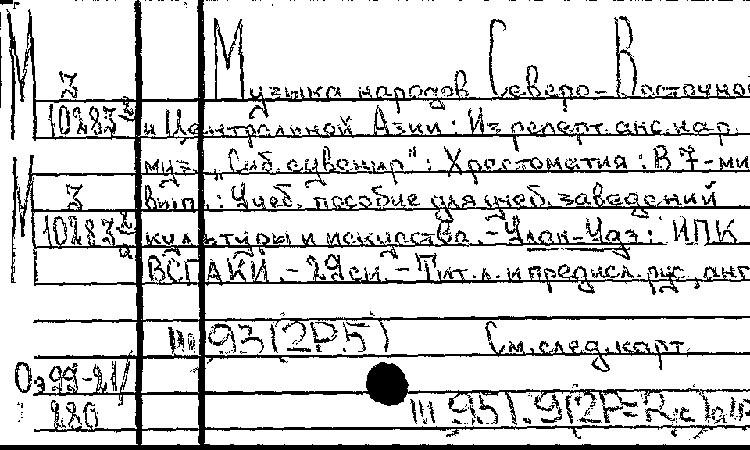 М Музыка народов Северо-Восточной
3
10283 и Центральной Азии: Из реперт. анс. нар.
муз. „Сиб. сувенир": Хрестоматия: В 7-ми
М 3 вып.: Учеб. пособие для учеб. заведений
10283 культуры и искусства. - Улан-Удэ: ИПК
ВСГАКИ. - 29 см. - Тит. л. и предисл. рус., анг
Ш 93(2Р5) См. след. карт.
Оэ 99-21/
280